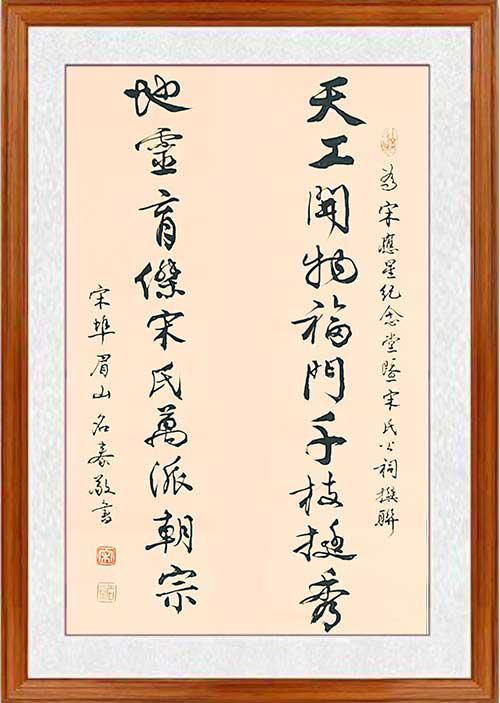 為宋應星紀念堂暨宋氏公祠撰聯
天工開物福門千枝挺秀
地靈育傑宋氏萬派朝宗
宋埠眉山名敬書